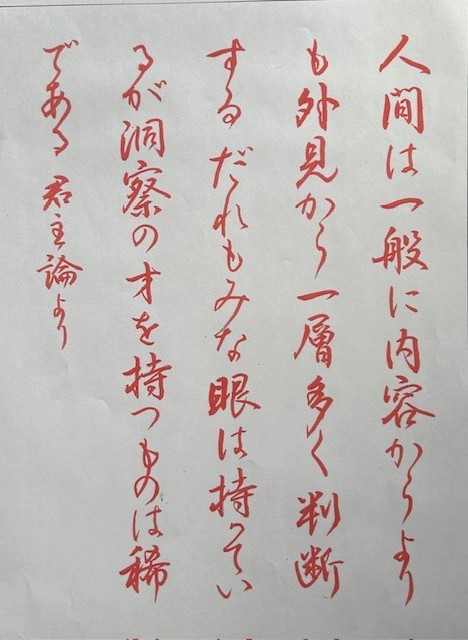 人間は一般に内容からより
も外見から一層多く判断
するだれもみな眼は持ってい
るが洞察の才を持つものは稀
である 君主論より